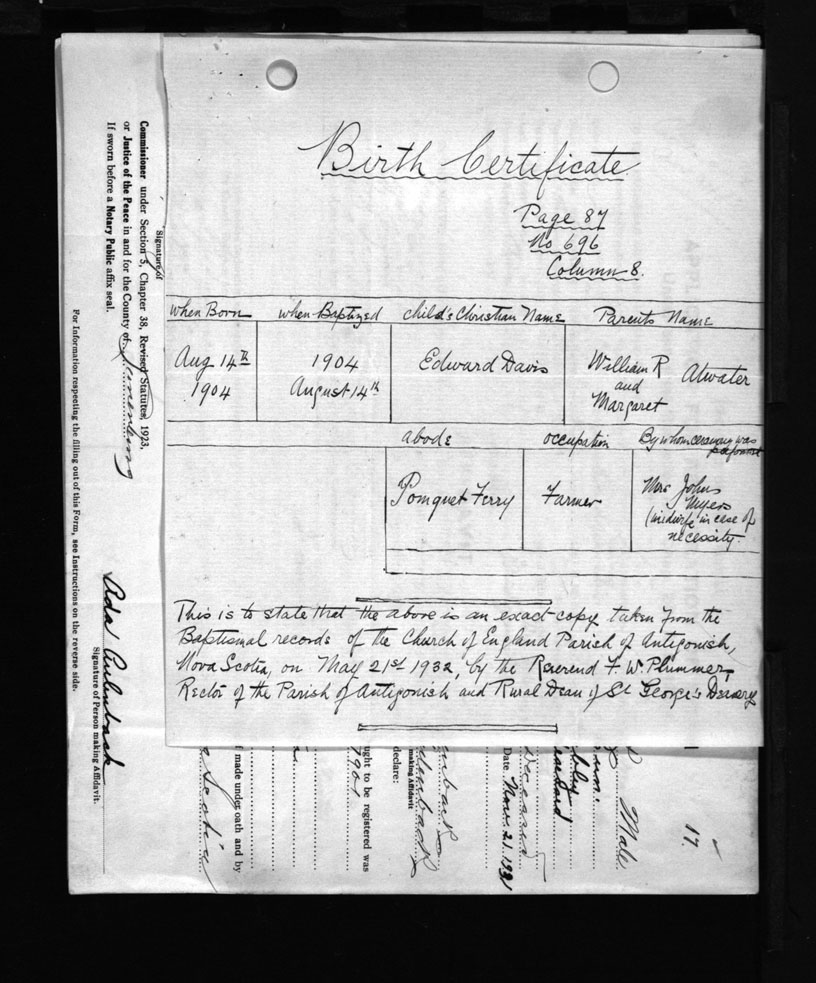 Birth Certificate
Page 87
No 696
Column 8.
when Born when Baptized child's Christian Name Parents Name
Aug 14th 1904 Edward Davis William R Atwater
1904 August 14th and
Margaret
abode occupation By whom ceremony was
performed
Pomquet Ferry Farmer Mrs John
Myers
(midwife in case of
necessity.
This is to state that the above is an exact copy taken from the
Baptismal records of the Church of England Parish of Antigonish,
Nova Scotia, on May 21st 1932, by the Reverend F. W. Plummer,
Rector of the Parish of Antigonish and Rural Dean of St George's Deanery
Signature of
Commissioner under Section 5, Chapter 38, Revised Statutes, 1923,
or Justice of the Peace in and for the County of Lunenburg
If sworn before a Notary Public affix seal.
Ada
Signature of Person making Affidavit.
For Information respecting the filling out of this Form, see Instructions on the reverse side.
17.
Male
Deceased
Date Nov. 21. 1931
making Affidavit
declare:
ught to be registered was
1901
f made under oath and by
Scotia